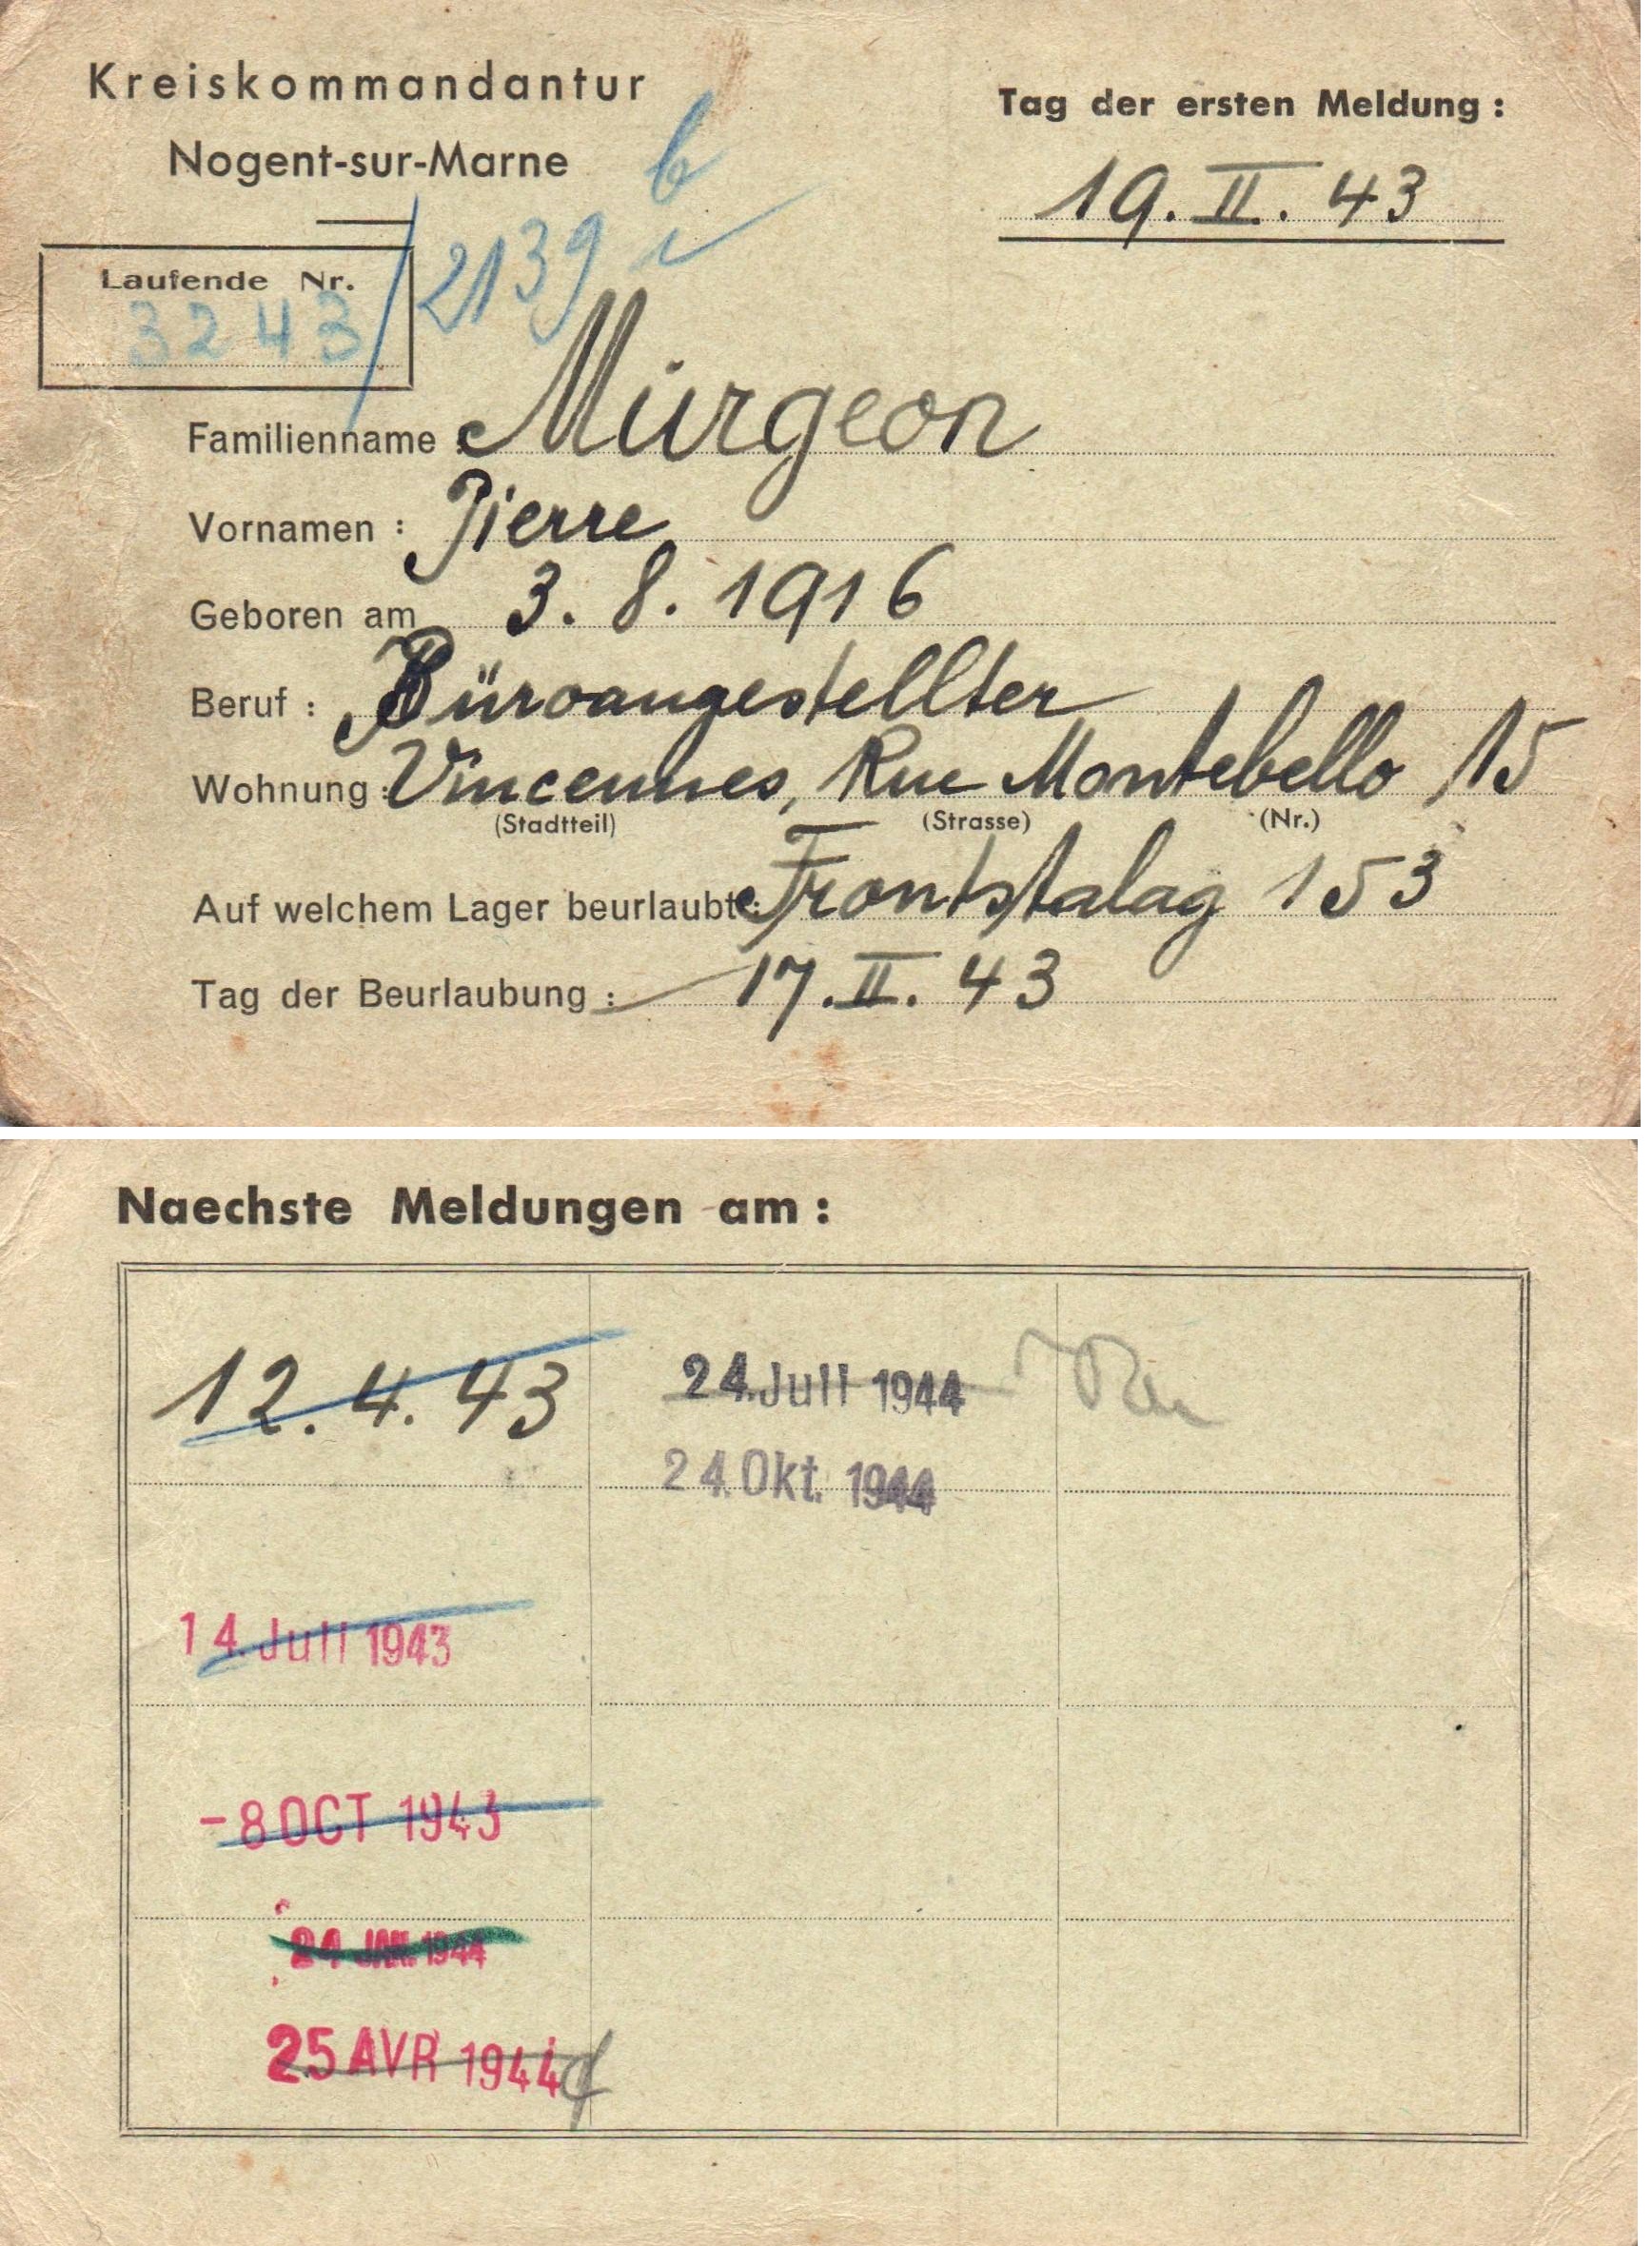 Kreiskommandantur
Nogent-sur-Marne
Tag der ersten Meldung :
19. II. 43
b
Laufende Nr.
3243 / 2139
Familienname : Murgeon
Vornamen : Pierre
Geboren am 3. 8. 1916
Beruf : Büroangestellter
Wohnung : Vincennes, Rue Montebello 15
(Stadtteil) (Strasse) (Nr.)
Auf welchem Lager beurlaubt : Frontstalag 153
Tag der Beurlaubung : 17. II. 43
Naechste Meldungen am :
12. 4. 43
24. Juli 1944
24. Okt. 1944
14. Juli 1943
- 8 OCT 1943
24 JAN. 1944
25 AVR 1944